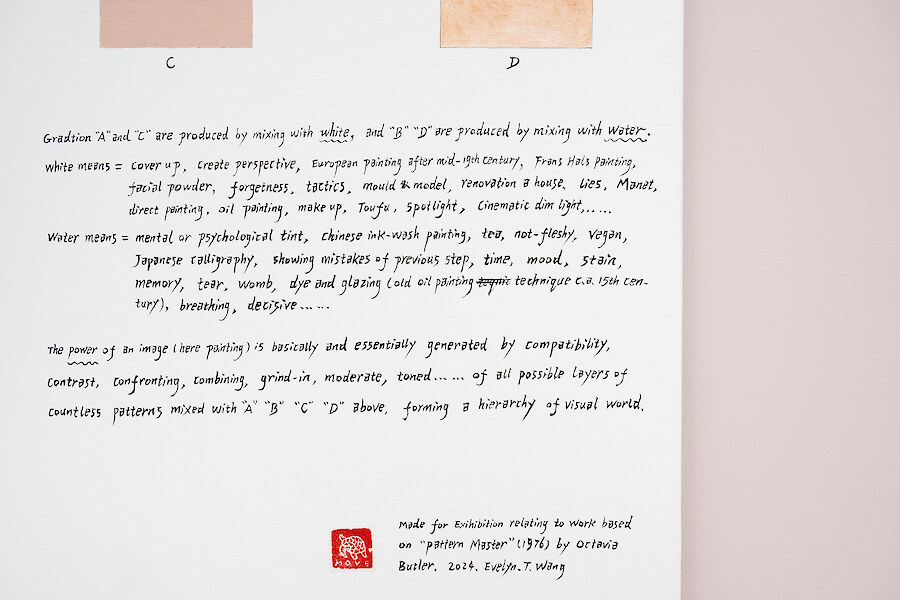 C
D
Gradtion "A" and "C" are produced by mixing with white, and "B" "D" are produced by mixing with water.
White means = cover up, create perspective, European painting after mid-19th century, Frans Hals painting,
facial powder, forgetness, tactics, mould & model, renovation a house, lies, Manet,
direct painting, oil painting, make up, Toufu, spotlight, cinematic dim light,.....
Water means = mental or psychological tint, chinese ink-wash painting, tea, not-fleshy, vegan,
Japanese calligraphy, showing mistakes of previous step, time, mood, stain,
memory, tear, womb, dye and glazing (old oil painting technique c.a. 15th cen-
tury), breathing, decisive......
The power of an image (here painting) is basically and essentially generated by compatibility,
contrast, confronting, combining, grind-in, moderate, toned...... of all possible layers of
countless patterns mixed with "A" "B" "C" "D" above, forming a hierarchy of visual world.
Made for Exihibition relating to work based
on "pattern Master" (1976) by Octavia
Butler. 2024. Evelyn.T.Wang
MOVE